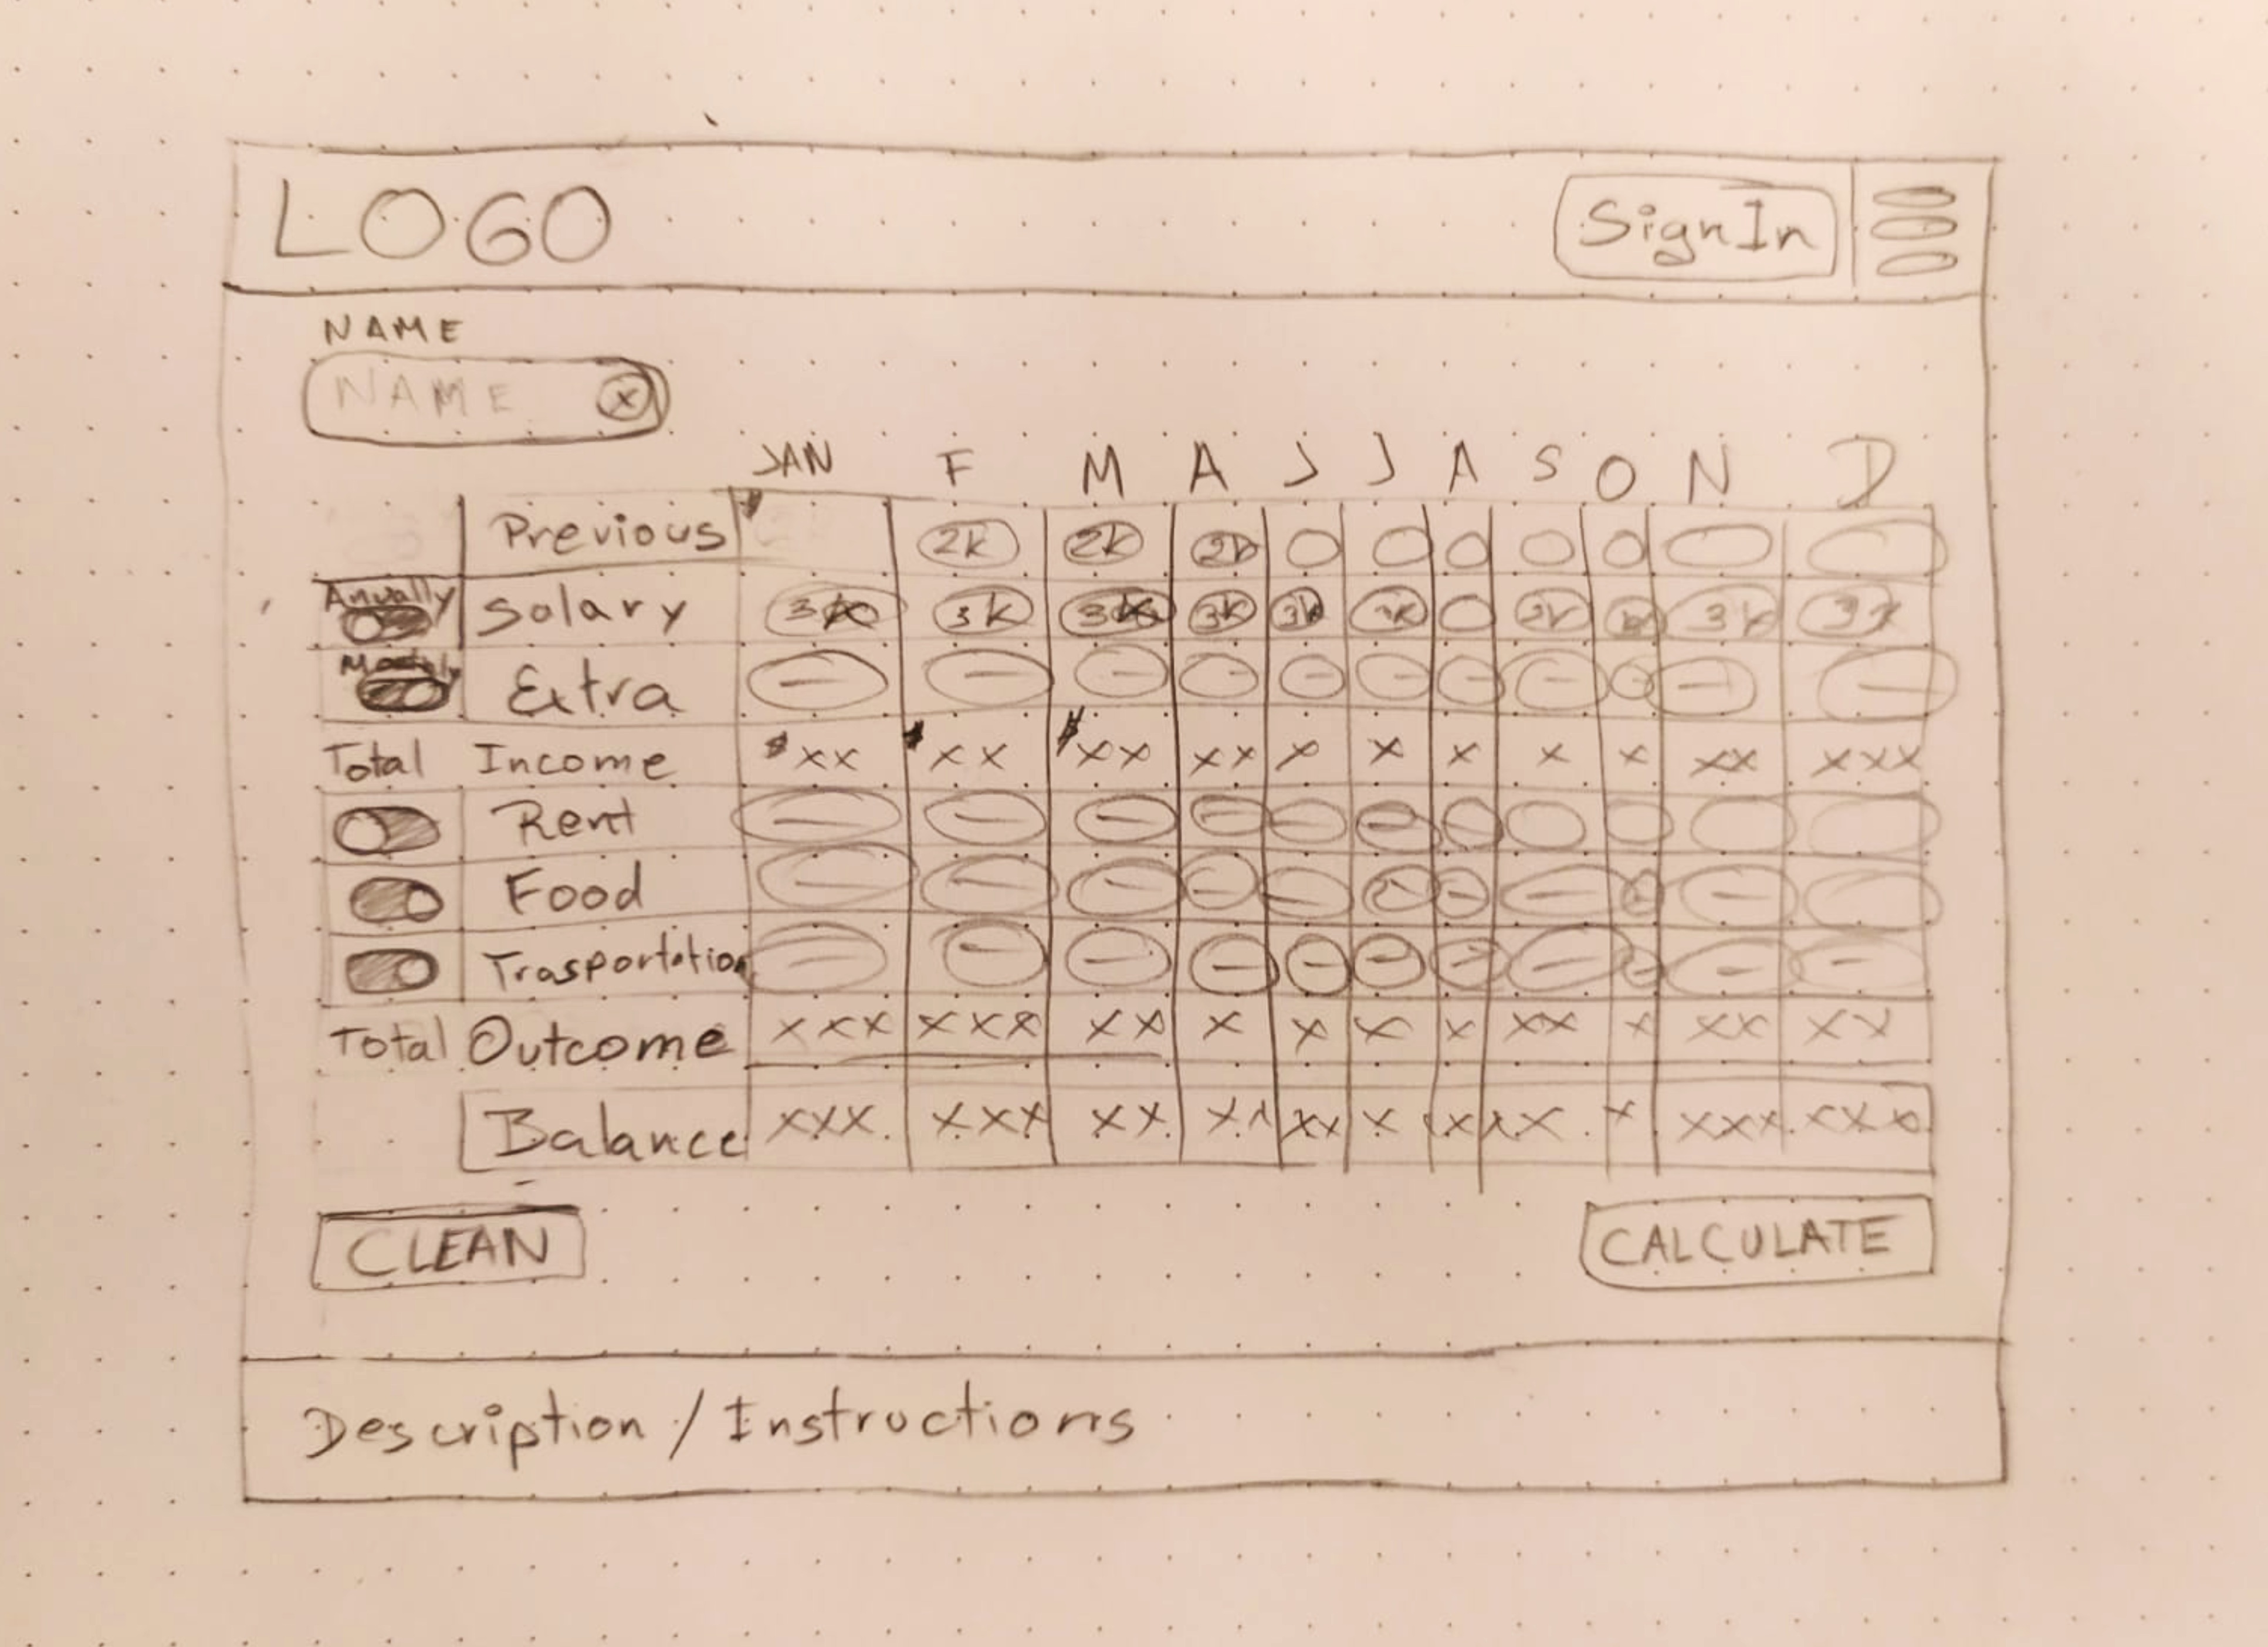 LOGO SignIn
NAME
NAME x
JAN F M A J J A S O N D
Previous 2k 2k 2k
Anually Salary 3k 3k 3k 3k 3k 3k 3k 3k
Extra — — — — — — — — — —
Total Income $xx $xx $xx xx x x x x x xx xxx
Rent — — — — — —
Food — — — — — — — —
Trasportation — — — — — — — — — — —
Total Outcome xxx xxx xx x x x x xx x xx xx
Balance xxx xxx xx xx xx x xx xx x xxx xxx
CLEAN CALCULATE
Description / Instructions